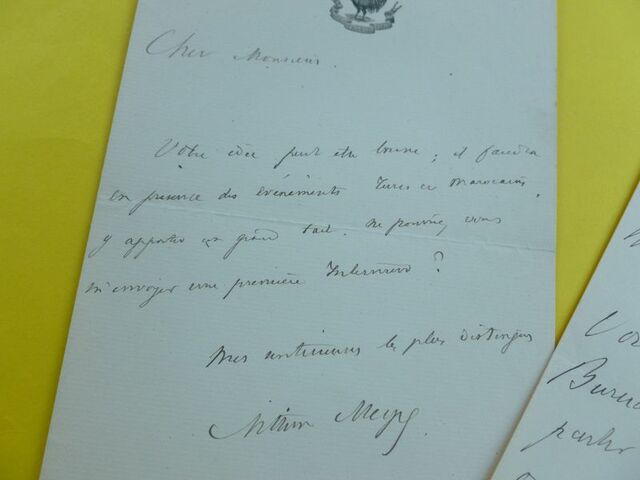 Cher Monsieur
Votre idée peut être bonne ; il faudra
en presence des événements Turcs et Marocains,
y apporter un grand tact. Ne pouvez vous
m'envoyer une première Interview ?
Mes sentiments les plus distingués
Arthur Meyer.
Bure
parler